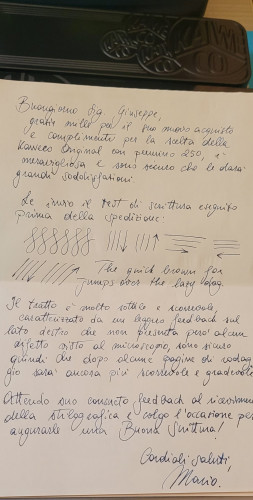 Buongiorno Sig. Giuseppe,
grazie mille per il suo nuovo acquisto
e complimenti per la scelta della
Kaweco Original con pennino 250, è
meravigliosa e sono sicuro che le darà
grandi soddisfazioni.
Le invio il test di scrittura eseguito
prima della spedizione:
The quick brown fox
jumps over the lazy dog
Il tratto è molto sottile e scorrevole,
caratterizzato da un leggero feedback sul
lato destro che non presenta però alcun
difetto visto al microscopio, sono sicuro
quindi che dopo alcune pagine di rodag
gio sarà ancora più scorrevole e gradevole
Attendo suo consueto feedback al ricevimento
della stilografica e colgo l'occasione per
augurarle una Buona Scrittura!
Cordiali saluti,
Mario.